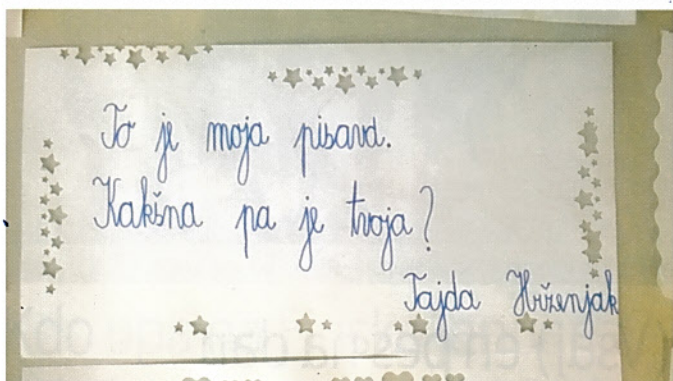 To je moja pisava.
Kakšna pa je tvoja?
Tajda Hriženjak